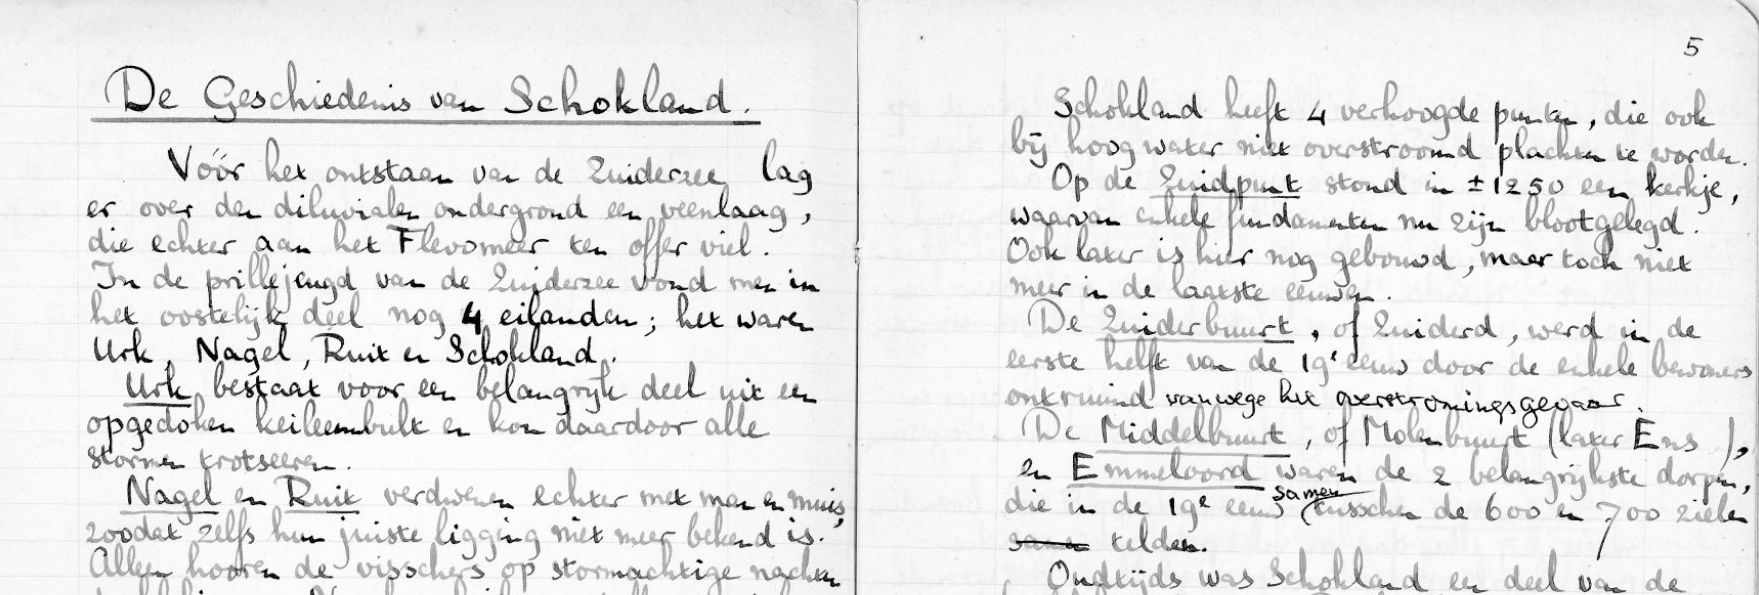 De Geschiedenis van Schokland.
Vóór het ontstaan van de Zuiderzee lag
er over den diluvialen ondergrond een veenlaag,
die echter aan het Flevomeer ten offer viel.
In de prille jeugd van de Zuiderzee vond men in
het oostelijk deel nog 4 eilanden; het waren
Urk, Nagel, Ruit en Schokland.
Urk bestaat voor een belangrijk deel uit een
opgedoken keileembult en kon daardoor alle
stormen trotseeren.
Nagel en Ruit verdwenen echter met man en muis,
zoodat zelfs hun juiste ligging niet meer bekend is.
Alleen hooren de visschers op stormachtige nachten
5
Schokland heeft 4 verhoogde punten, die ook
bij hoog water niet overstroomd plachten te worden.
Op de Zuidpunt stond in ± 1250 een kerkje,
waarvan enkele fundamenten nu zijn blootgelegd.
Ook later is hier nog gebouwd, maar toch niet
meer in de laatste eeuwen.
De Zuiderbuurt, of Zuiderd, werd in de
eerste helft van de 19e eeuw door de enkele bewoners
ontruimd vanwege het overstromingsgevaar.
De Middelbuurt, of Molenbuurt (later Ens ),
en Emmeloord waren de 2 belangrijkste dorpen,
die in de 19e eeuw samen tusschen de 600 en 700 zielen
samen telden.
Oudtijds was Schokland een deel van de